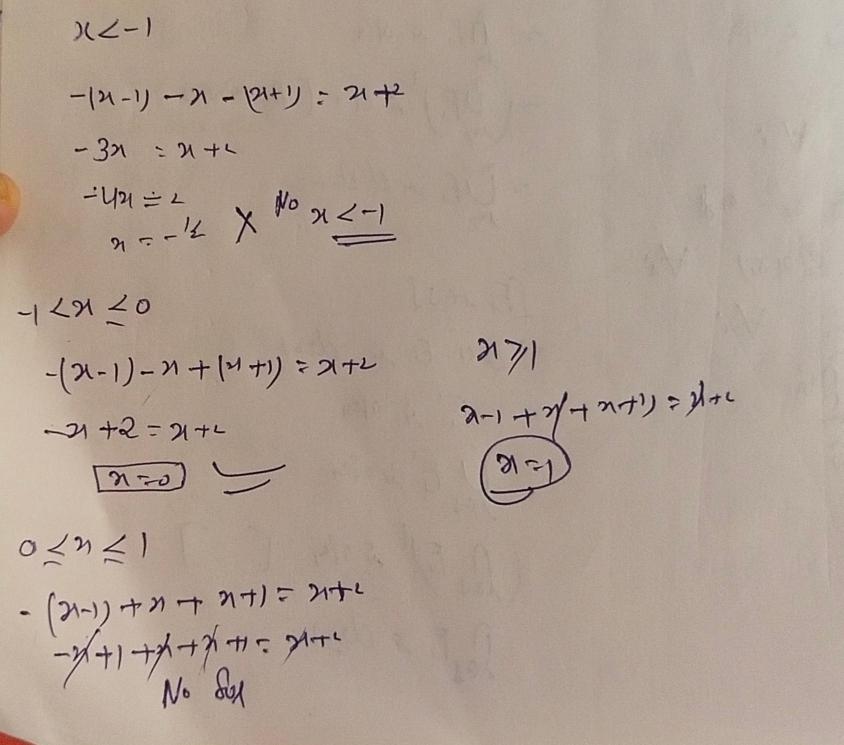 x < -1
-(x-1) - x - (x+1) = x+2
- 3x = x+2
-4x = 2
x = -1/2 X No x < -1
-1 < x ≤ 0
-(x-1) - x + (x+1) = x+2
-x + 2 = x+2
x = 0
0 ≤ x ≤ 1
- (x-1) + x + x+1 = x+2
-x + 1 + x + x + 1 = x+2
No Sol
x ≥ 1
x-1 + x + x+1) = x+2
x = 1